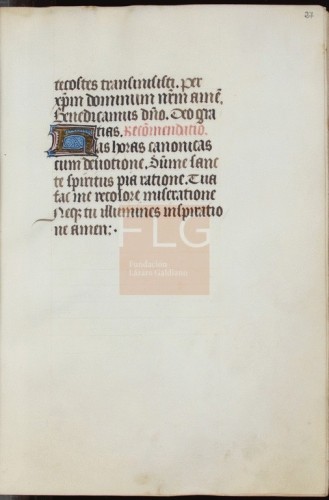 27
tecostes transmisisti. Per
xpm dominum nrm amē.
Benedicamus dño. Deo gra
tias. Recōmenditio.
Has horas canonicas
cum deuotione. Sūme sanc
te spiritus pia ratione. Tua
fac me recolore miseratione
Neqz tu illumines inspiratio
ne amen: ·
FLG
Fundación
Lázaro Galdiano